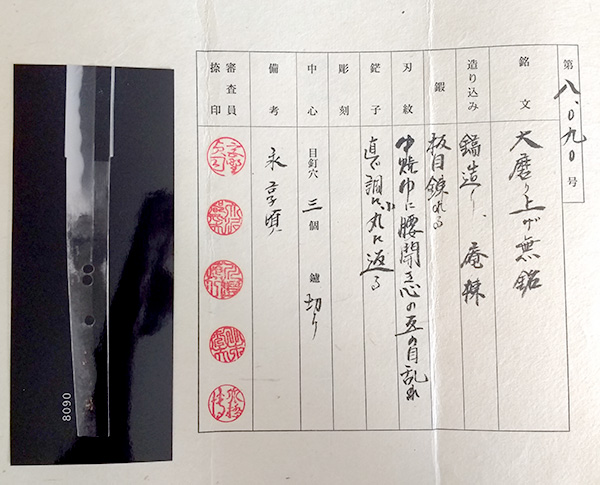 第八、〇九〇号
銘文 大磨り上げ無銘
造り込み 鎬造り、庵棟
鍛 板目錬れる
刃紋 中焼巾に腰開き心の互の目乱れ
鋩子 直ぐ調に小丸に返る
彫刻
中心 目釘穴 三個 鑢 切り
備考 永享頃
審査員捺印
8090